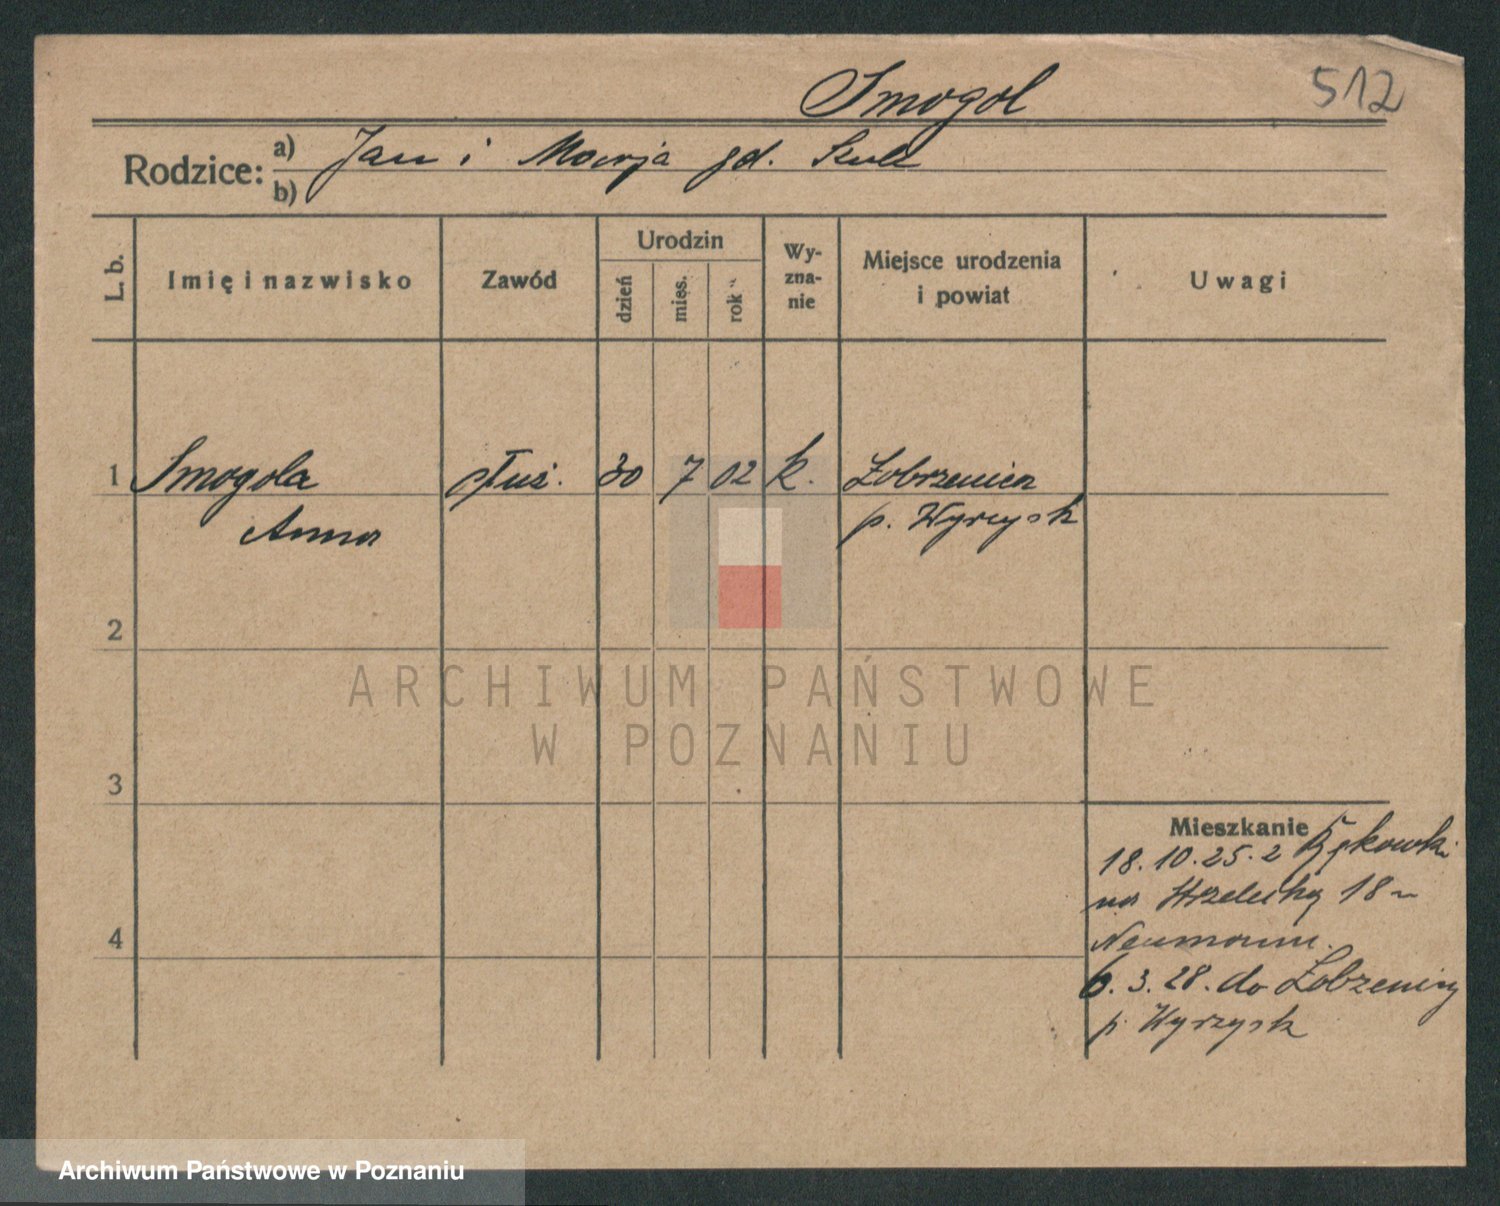 Smogol
512
Rodzice: a) Jan i Marja gd. Szulc
b)
L. b. Imię i nazwisko Zawód Urodzin dzień mies. rok Wy-zna-nie Miejsce urodzenia i powiat Uwagi
1 Smogola służ. 30 7 02 k. Łobżenica
Anna p. Wyrzysk
2
3
4
Mieszkanie
18.10.25. z
na Strzelecką 18
Neumann.
6.3.28. do Łobżenicy
p. Wyrzysk
ARCHIWUM PAŃSTWOWE
W POZNANIU
Archiwum Państwowe w Poznaniu